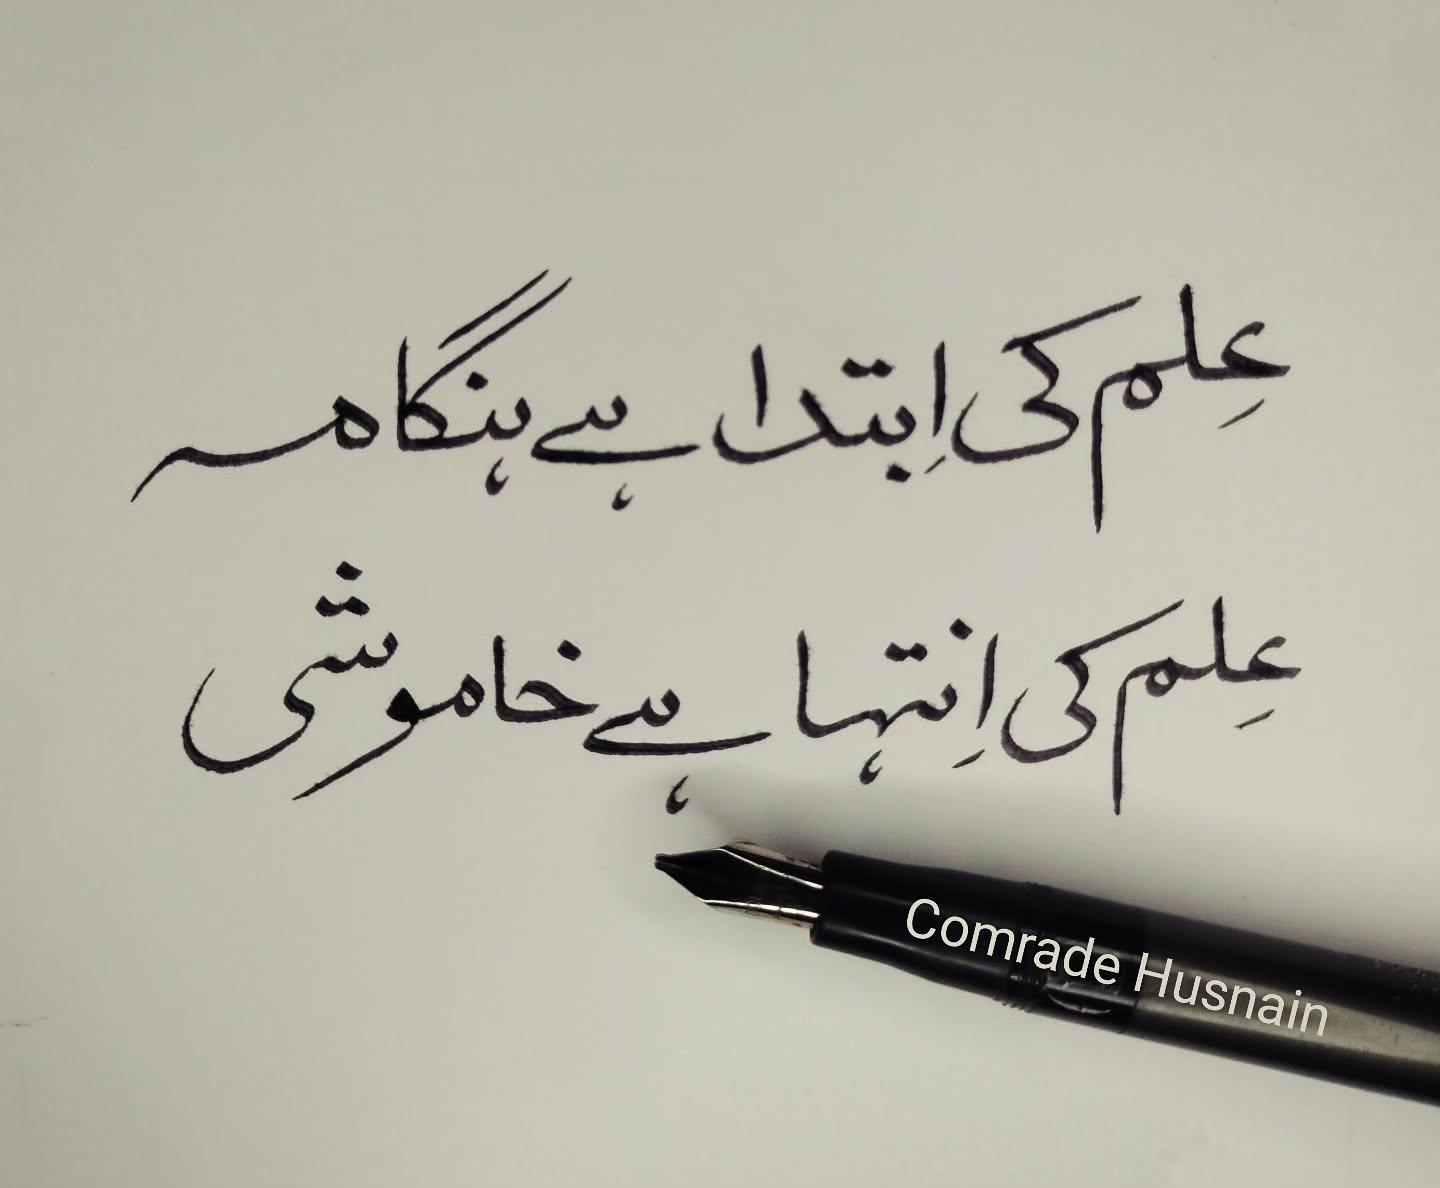 عِلم کی اِبتدا ہے ہنگامہ
عِلم کی اِنتہا ہے خاموشی
Comrade Husnain